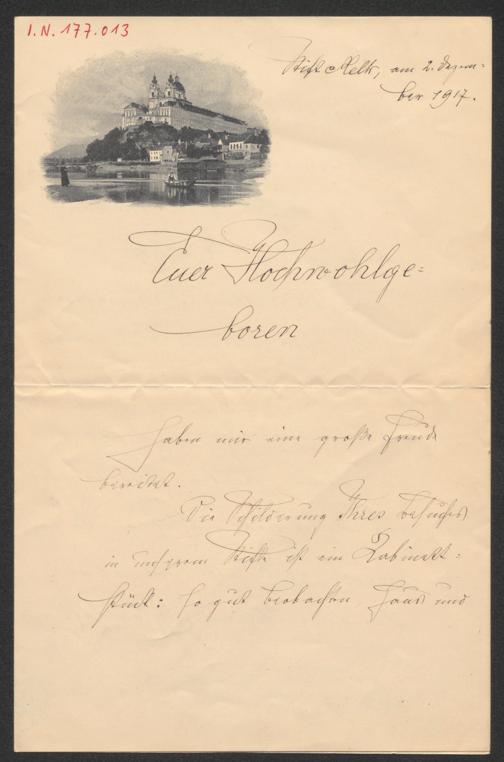 I.N. 177.013
Stift Melk, am 2. Dezem-
ber 1917.
Euer Hochwohlge-
boren
haben mir eine große Freude
bereitet.
Die Schilderung Ihres Besuches
in unserem Stifte ist ein Kabinett-
stück: so gut beobachten Haus und